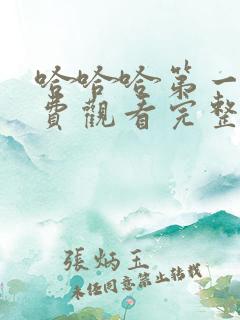 哈哈哈第一
費觀看完整
張炳玉
未经同意禁止转载